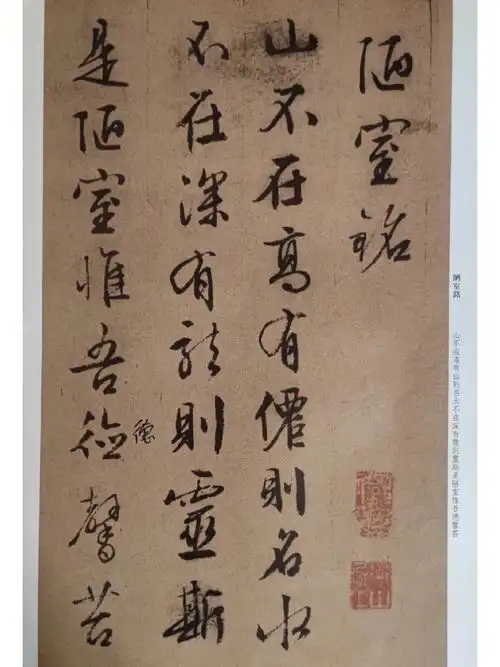 陋室銘
山不在高有僊則名水
不在深有龍則靈斯
是陋室惟吾德馨苔
德
陋室銘
山不在高有仙則名水不在深有龍則靈斯是陋室惟吾德馨苔